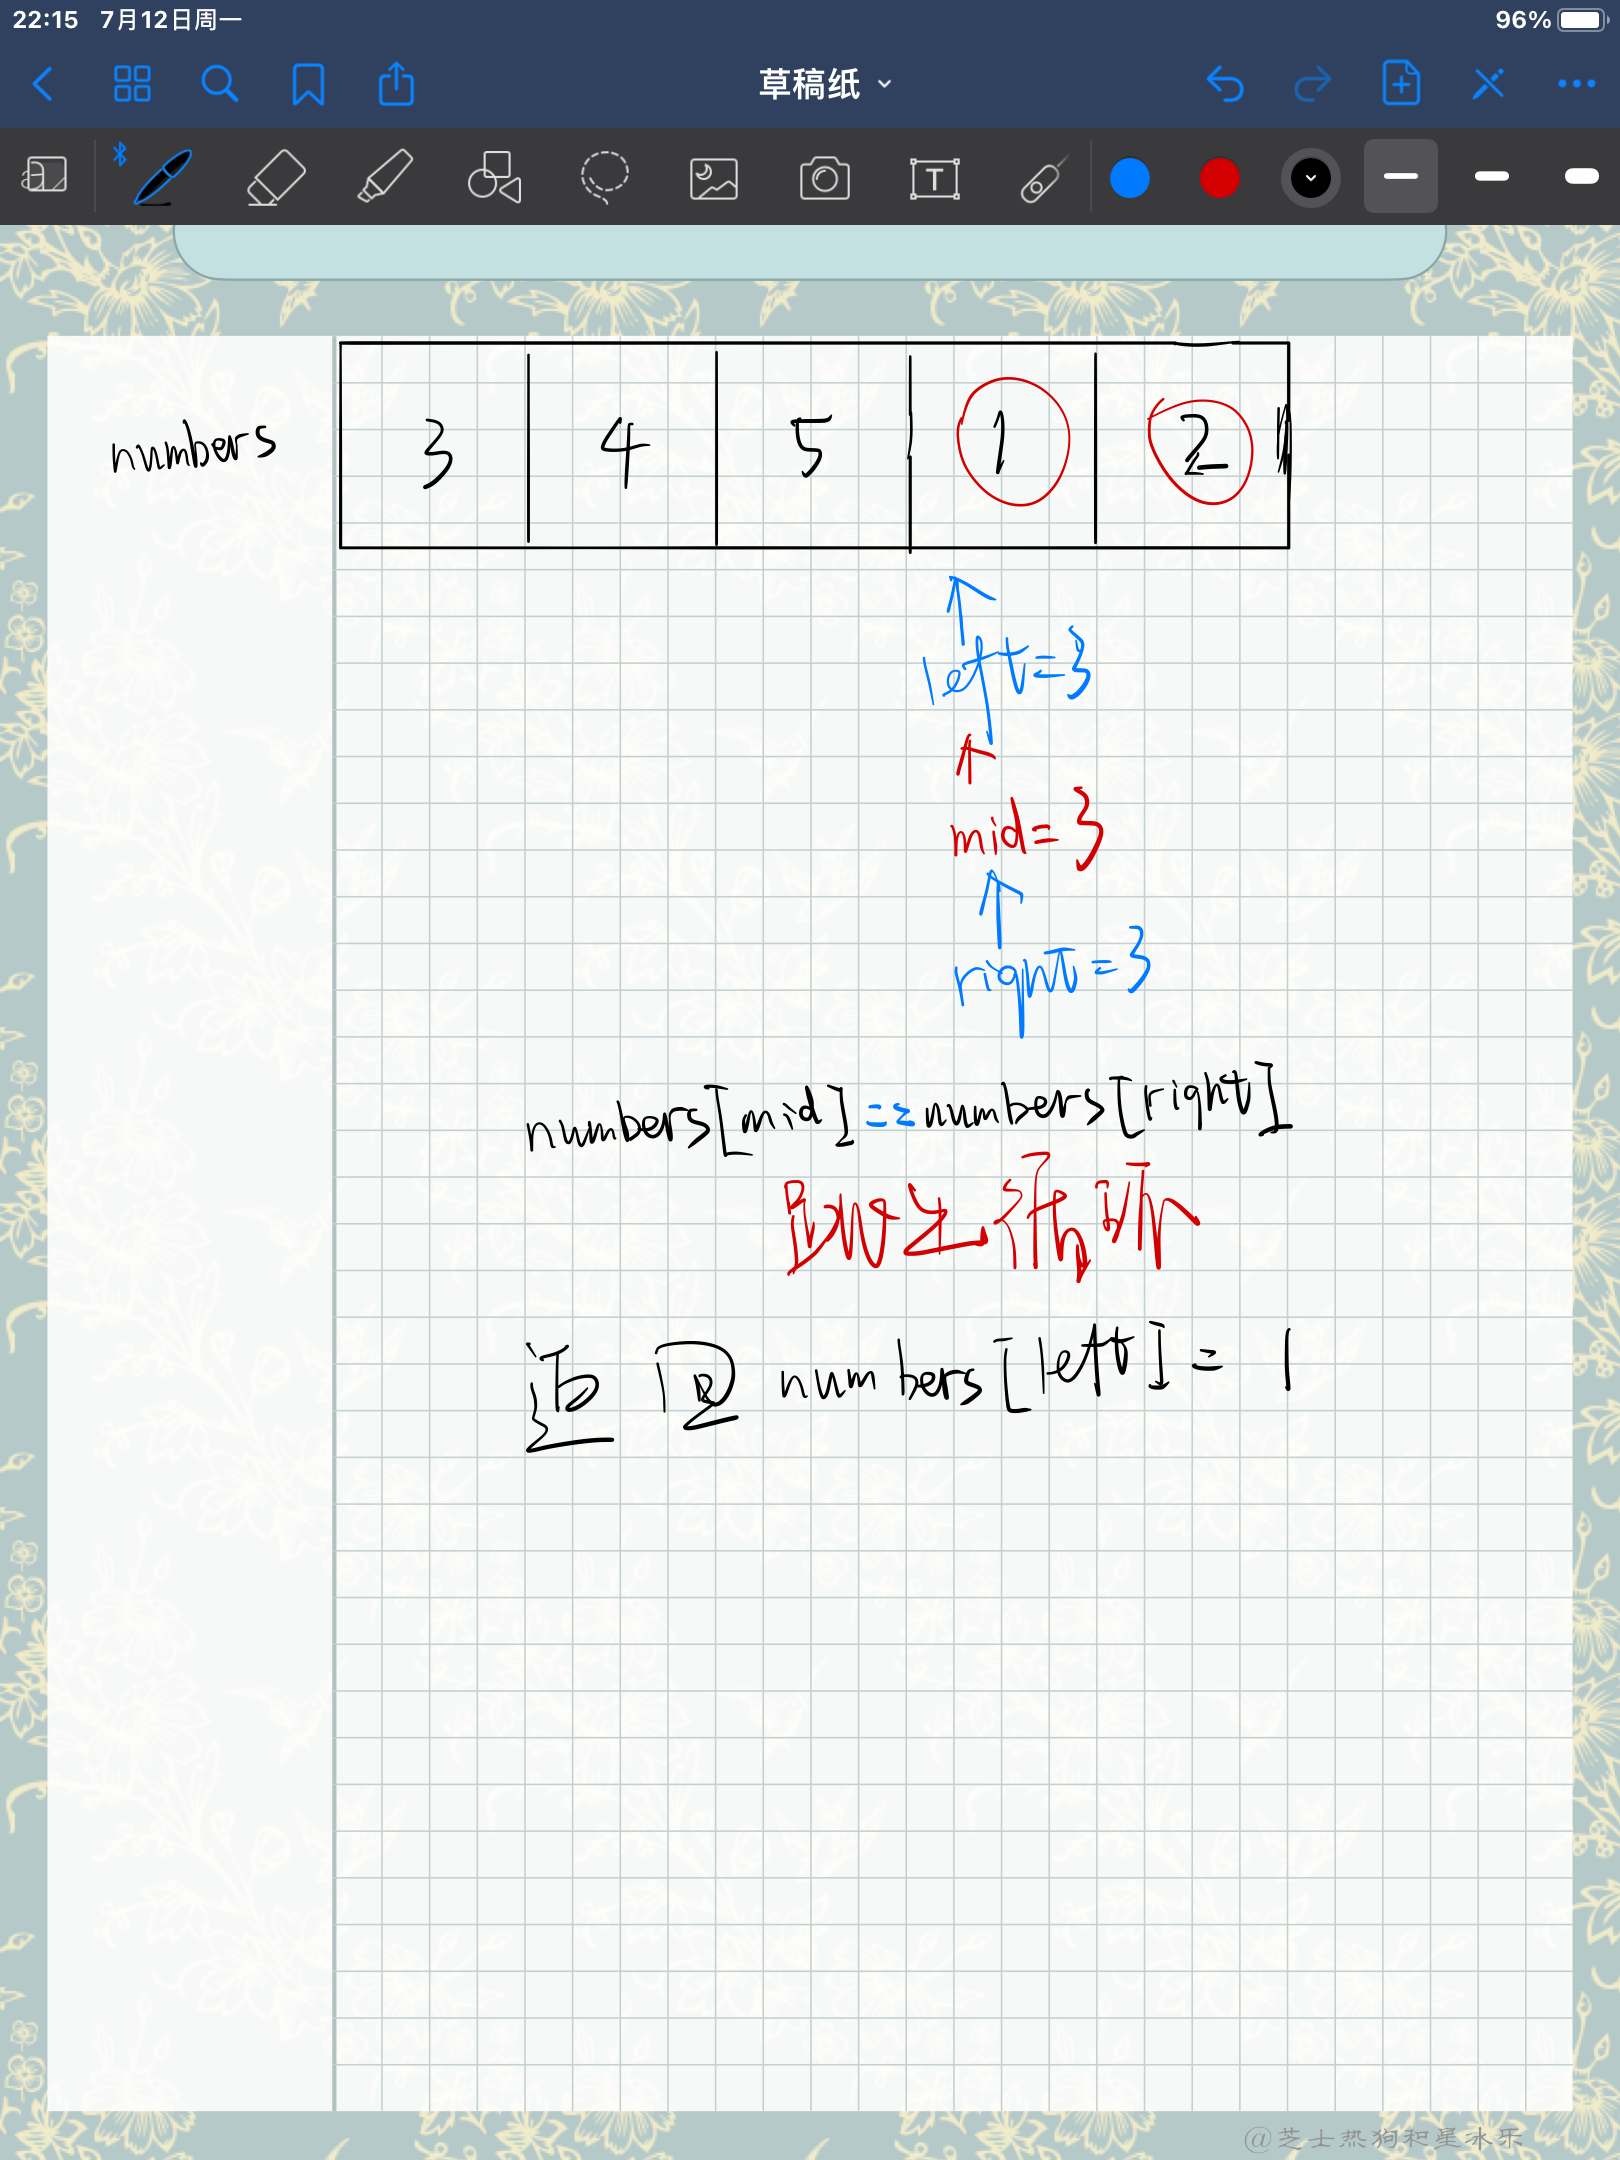 22:15 7月12日周一 96%
草稿纸
numbers 3 4 5 1 2
left=3
mid=3
right=3
numbers[mid]==numbers[right]
跳出循环
返回 numbers[left]=1
@芝士热狗和星冰乐